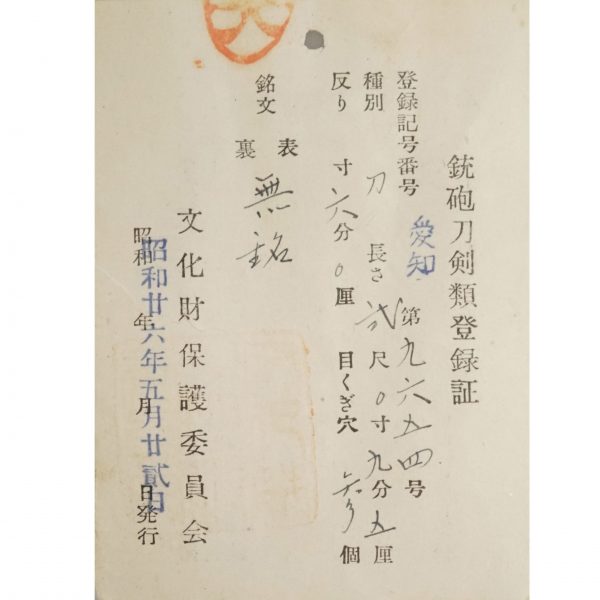 銃砲刀剣類登録証
登録記号番号 愛知 第九六五四号
種別 刀 長さ 弐尺〇寸九分五厘
反り 寸六分〇厘 目くぎ穴 参個
銘文 表 無銘
裏
文化財保護委員会
昭和 年 月 日発行
昭和廿六年五月廿貳日